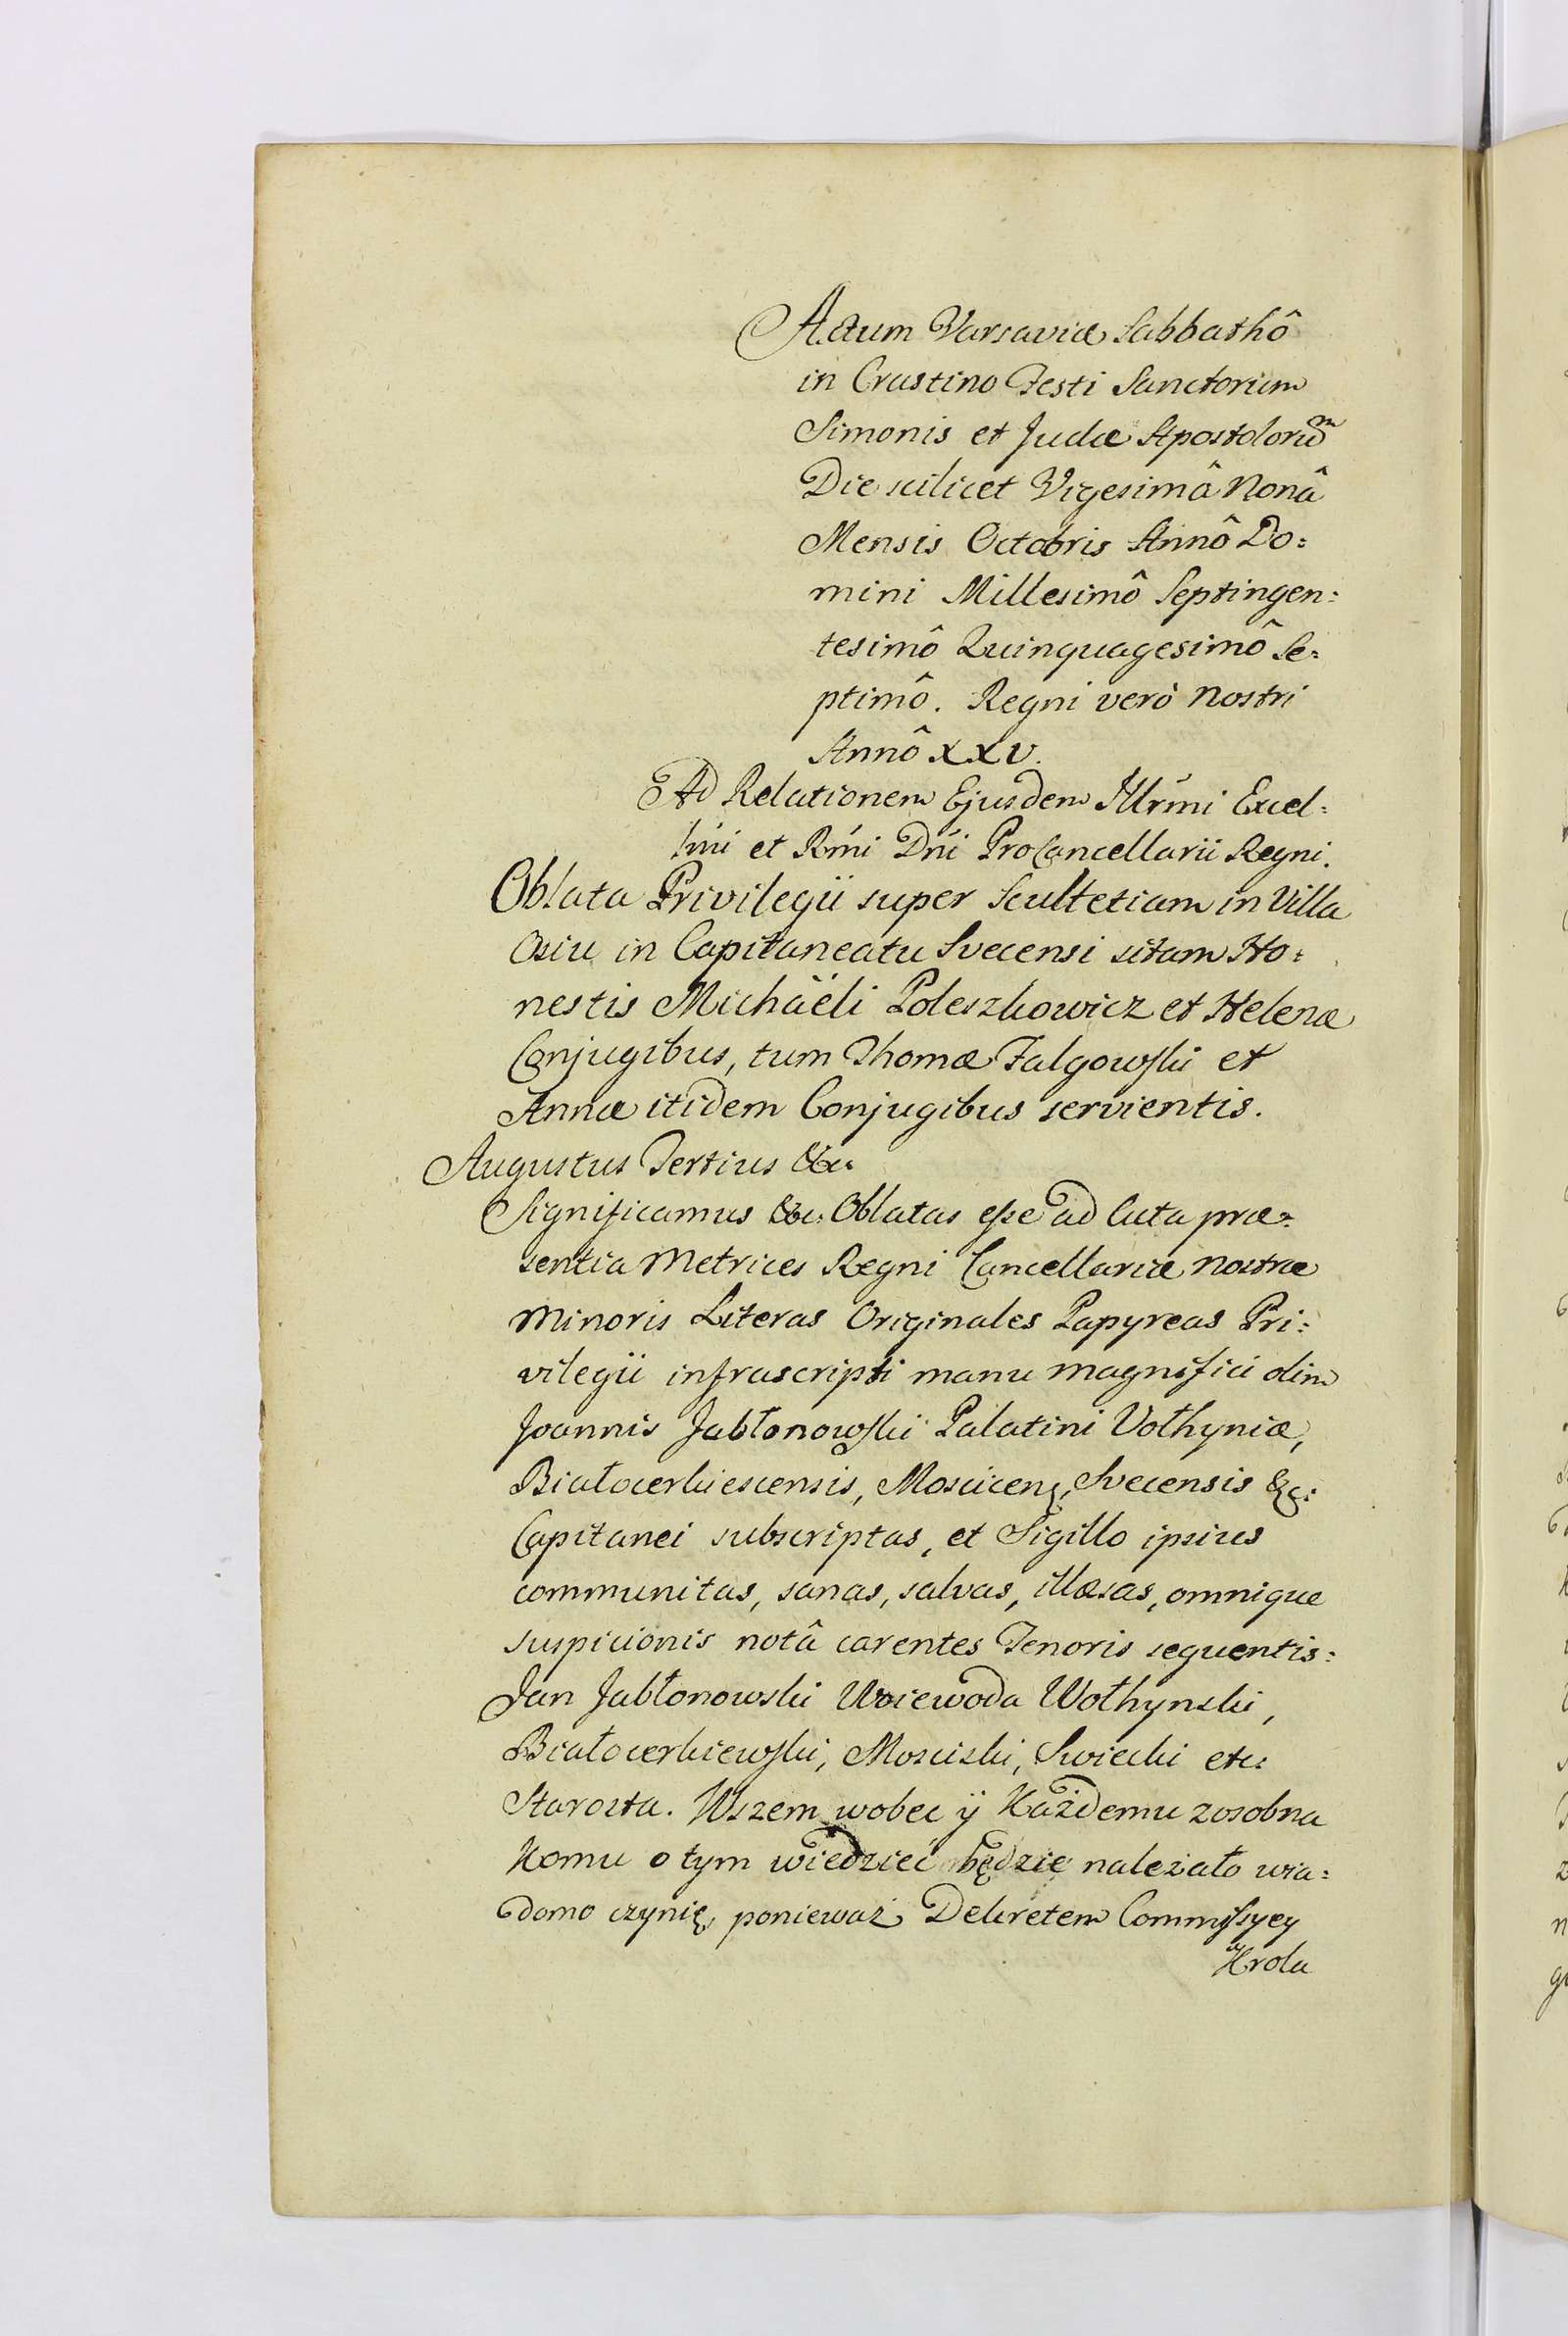 Actum Varsaviæ Sabbathô
in Crastino Festi Sanctorum
Simonis et Judæ Apostolorum
Die scilicet Vigesimâ Nonâ
Mensis Octobris Annô Do:
mini Millesimô Septingen:
tesimô Quinquagesimô Se:
ptimô. Regni verò Nostri
Annô XXV.
Ad Relationem Ejusdem Illrm̃i Excel:
lm̃i et Rm̃i Dñi ProCancellarii Regni.
Oblata Privilegii super Scultetiam in Villa
Osiu in Capitaneatu Svecensi sitam Ho:
nestis Michaëli Poleszkowicz et Helenæ
Conjugibus, tum Thomæ Falgowski et
Annæ itidem Conjugibus servientis.
Augustus Tertius &c.
Significamus &c: Oblatas esse ad Acta præ:
sentia Metrices Regni Cancellariæ Nostræ
Minoris Literas Originales Papyreas Pri:
vilegii infrascripti manu Magnifici olim
Joannis Jabłonowski Palatini Vołhyniæ,
Białocerkiescensis, Moscicen, Svecensis &c:
Capitanei subscriptas, et Sigillo ipsius
communitas, sanas, salvas, illæsas, omnique
suspicionis notâ carentes Tenoris sequentis:
Jan Jabłonowski Woiewoda Wołhynski,
Białocerkiewski, Mosciski, Swiecki etc:
Starosta. Wszem wobec ÿ Każdemu zosobna
Komu o tym wiedzieć będzie należało wia:
domo czynię, ponieważ Dekretem Commissyey
Krola